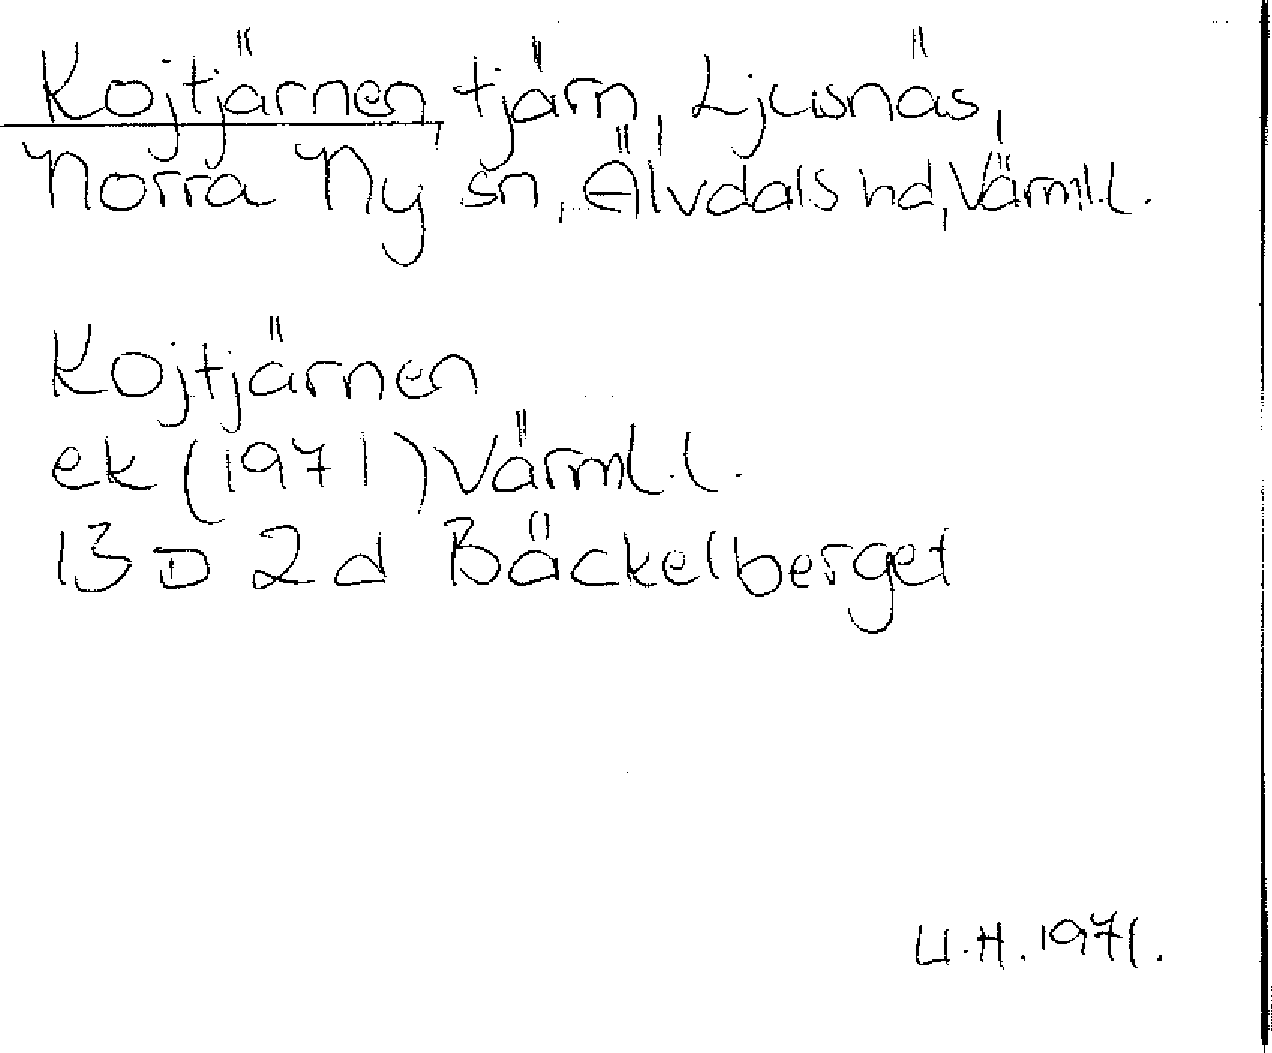 Kojtjärnen, tjärn, Ljusnäs,
Norra Ny sn, Älvdals hd, Värml.l.
Kojtjärnen
ek (1971) Värml.l.
13 D 2 d Bäckelberget
U.H. 1971.